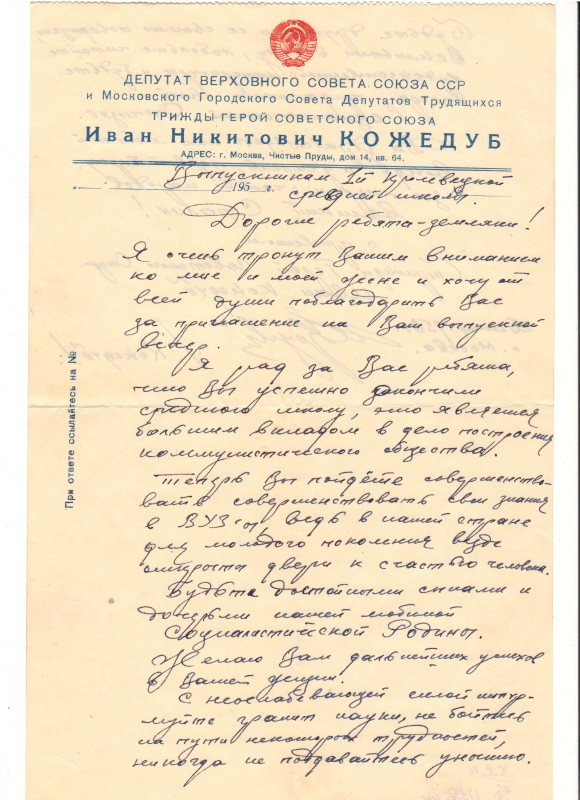 ДЕПУТАТ ВЕРХОВНОГО СОВЕТА СОЮЗА ССР
и Московского Городского Совета Депутатов Трудящихся
ТРИЖДЫ ГЕРОЙ СОВЕТСКОГО СОЮЗА
Иван Никитович КОЖЕДУБ
АДРЕС: г. Москва, Чистые Пруды, дом 14, кв. 64.
Выпускникам 1й Кролевецкой
195 г.
средней школы.
Дорогие ребята-земляки!
Я очень тронут Вашим вниманием
ко мне и моей жене и хочу от
всей души поблагодарить Вас
за приглашение на Ваш выпускной
вечер.
Я рад за Вас ребята,
что Вы успешно закончили
среднюю школу, это является
большим вкладом в дело построения
коммунистического общества.
Теперь Вы пойдёте совершенство-
вать совершенствовать свои знания
в ВУЗы, ведь в нашей стране
для молодого поколения везде
открыты двери к счастью человека.
Будьте достойными сынами и
дочерьми нашей любимой
Социалистической Родины.
Желаю Вам дальнейших успехов
в Вашей жизни.
С неослабевающей силой штур-
муйте гранит науки, не бойтесь
на пути некоторых трудностей,
никогда не поддавайтесь унынию.
При ответе ссылайтесь на №